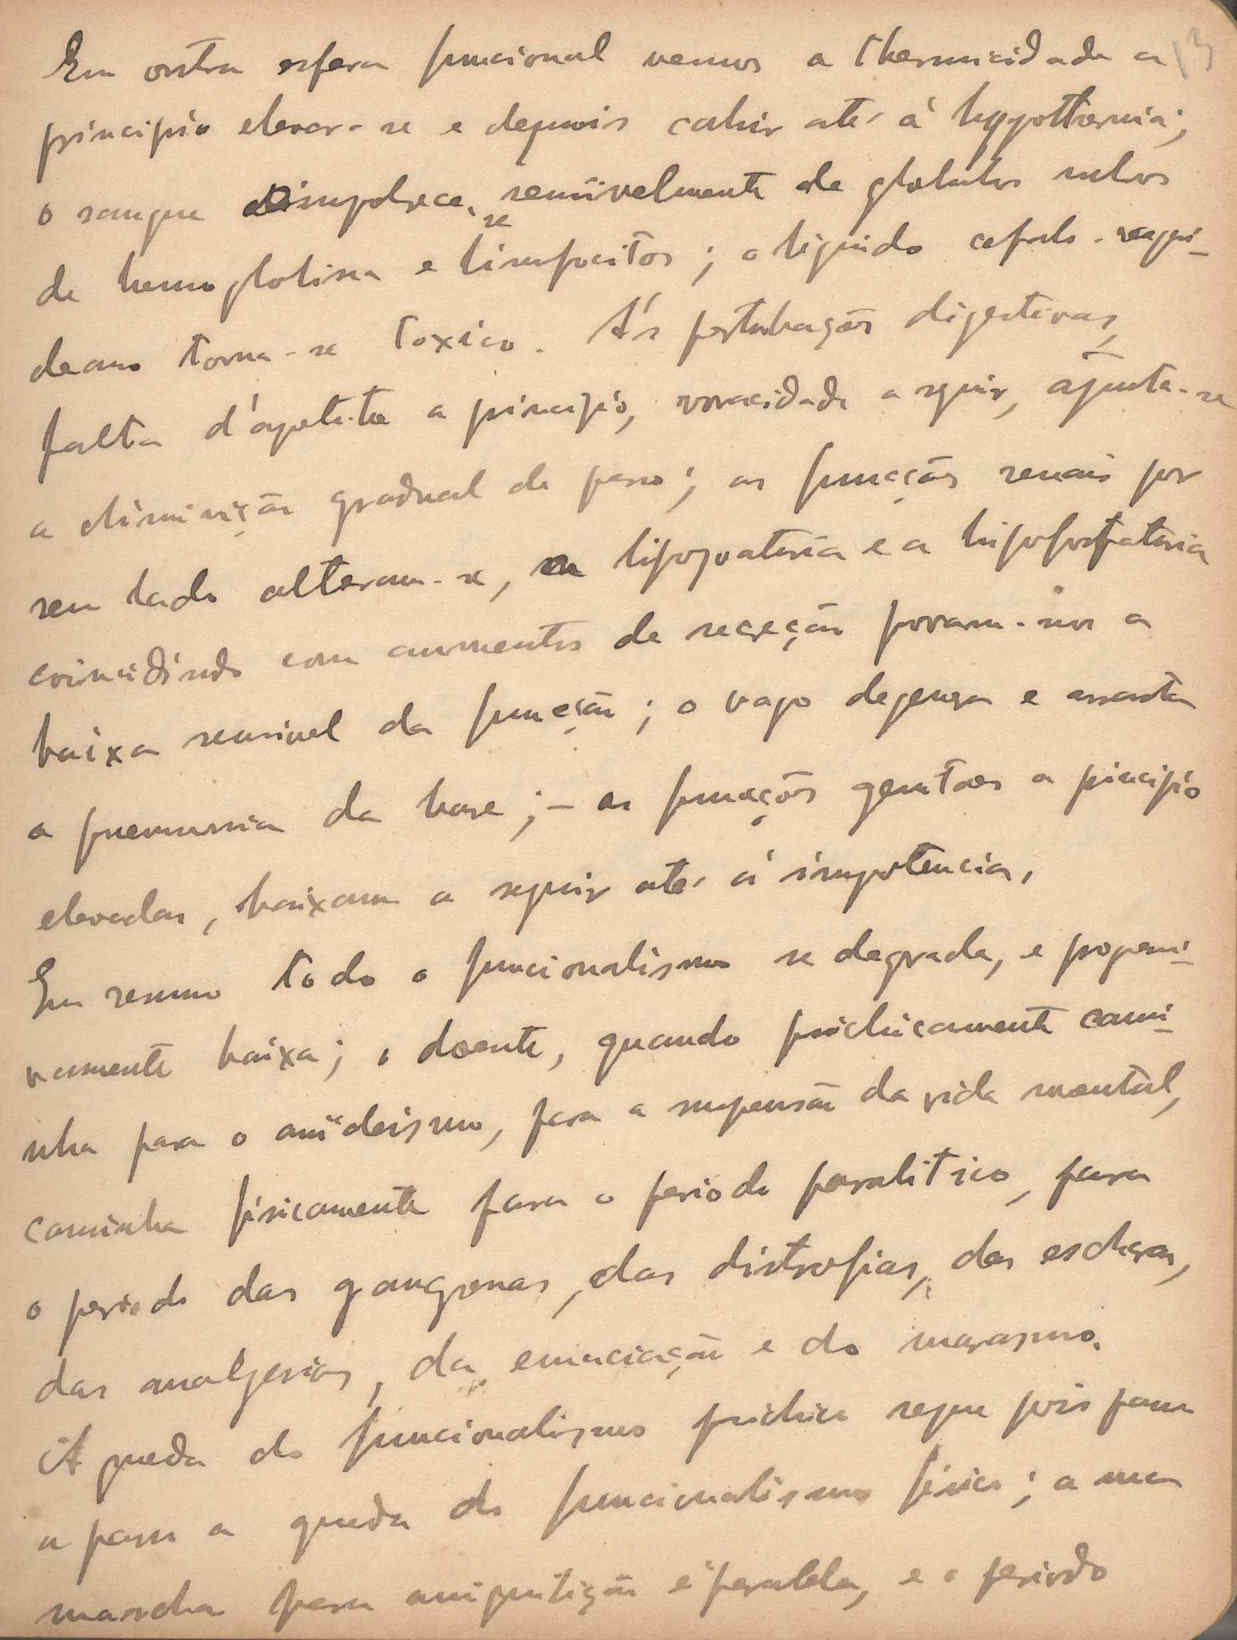 Em outra esfera funcional vemos a thermicidade a 13
principio elevar-se e depois cahir até á hypothermia;
o sangue impobrece-se sensivelmente de globulos rubros
de hemoglobina e limfocitos; o liquido cefalo-raqui-
deano torna-se toxico. Ás perturbações digestivas,
falta d'apetite a principio, voracidade a seguir, ajunta-se
a diminuição gradual de peso; as funcções renais por
seu lado alteram-se, a hipoazoturia e a hipofosfaturia
coincidindo com aumentos de secreção provam-nos a
baixa sensivel da funcção; o vago degenera e assenta
a pneumonia da base; – as funcções genitaes a principio
elevadas, baixam a seguir até á impotencia.
Em resumo todo o funcionalismo se degrada, e progessi-
vamente baixa; o doente, quando psichicamente cami-
nha para o anideismo, para a suspensão da vida mental,
caminha fisicamente para o periodo paralitico, para
o periodo das gangrenas, das distrofias, das escharas,
das analgesias, da emaciação e do marasmo.
A queda do funcionalismo psichico segue pois passo
a passo a queda do funcionalismo fisico; a sua
marcha para aniquilição é paralela, e o periodo